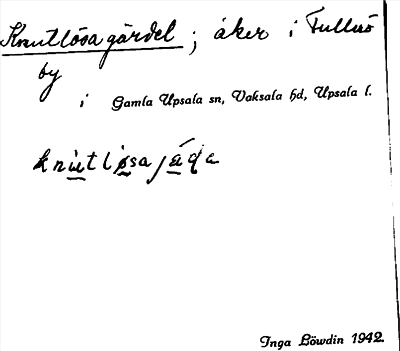 Knutlösagärdet; åker i Fullerö
by
i Gamla Upsala sn, Vaksala hd, Upsala l.
knutløsajäɖa
Inga Löwdin 1942.